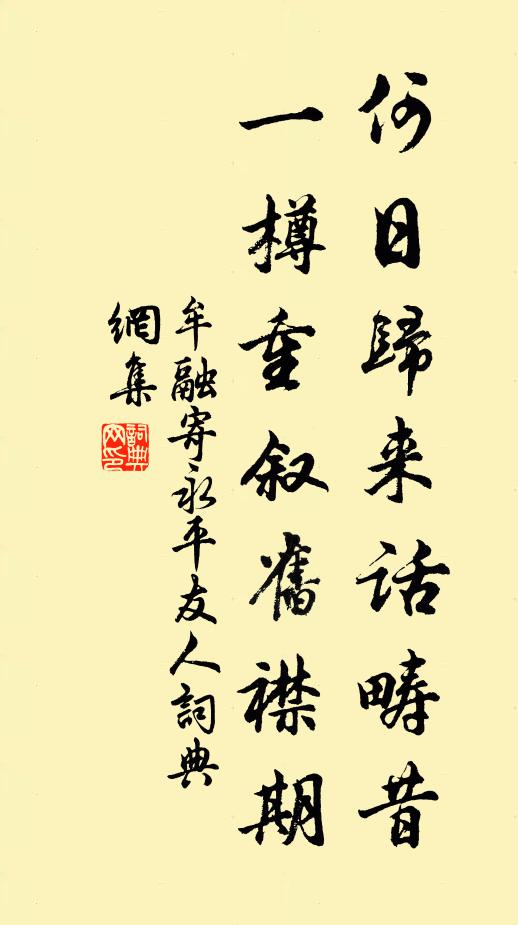 何日歸来話疇昔
一樽重叙舊襟期
牟融寄永平友人詞典
網集
詞典
网印